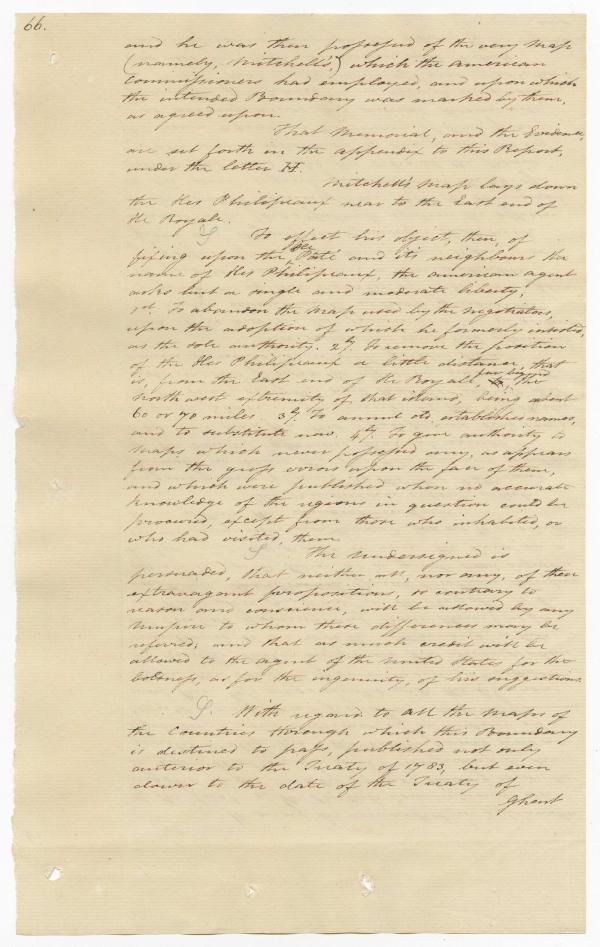 66.
and he was then possessed of the very map
(namely, Mitchell's,) which the american
Commissioners had employed, and upon which
the intended Boundary was marked by them,
as agreed upon.
That Memorial, and the Evidence,
are set forth in the appendix to this Report,
under the letter H.
Mitchell's map lays down
the Iles Philipeaux near to the East end of
Ile Royale.
To effect his object, then, of
fixing upon the Paté and its neighbours the
name of Iles Philipeaux, the american agent
asks but a single and moderate liberty;
1st. To abandon the map used by the negotiators,
upon the adoption of which he formerly insisted,
as the sole authority. 2dly. To remove the position
of the Iles Philipeaux a little distance, that
is, from the East end of Ile Royale, far beyond the
north west extremity of that island, being about
60 or 70 miles. 3dly. To annul old established names,
and to substitute new. 4thly. To give authority to
maps which never possessed any, as appears
from the gross errors upon the face of them,
and which were published when no accurate
knowledge of the regions in question could be
procured, except from those who inhabited, or
who had visited, them.
The Undersigned is
persuaded, that neither all, nor any, of these
extravagant propositions, so contrary to
reason and conscience, will be allowed by any
Umpire to whom these differences may be
referred; and that as much credit will be
allowed to the agent of the United States for the
boldness, as for the ingenuity, of his suggestions.
With regard to all the maps of
the Countries through which this Boundary
is destined to pass, published not only
anterior to the Treaty of 1783, but even
down to the date of the Treaty of
Ghent